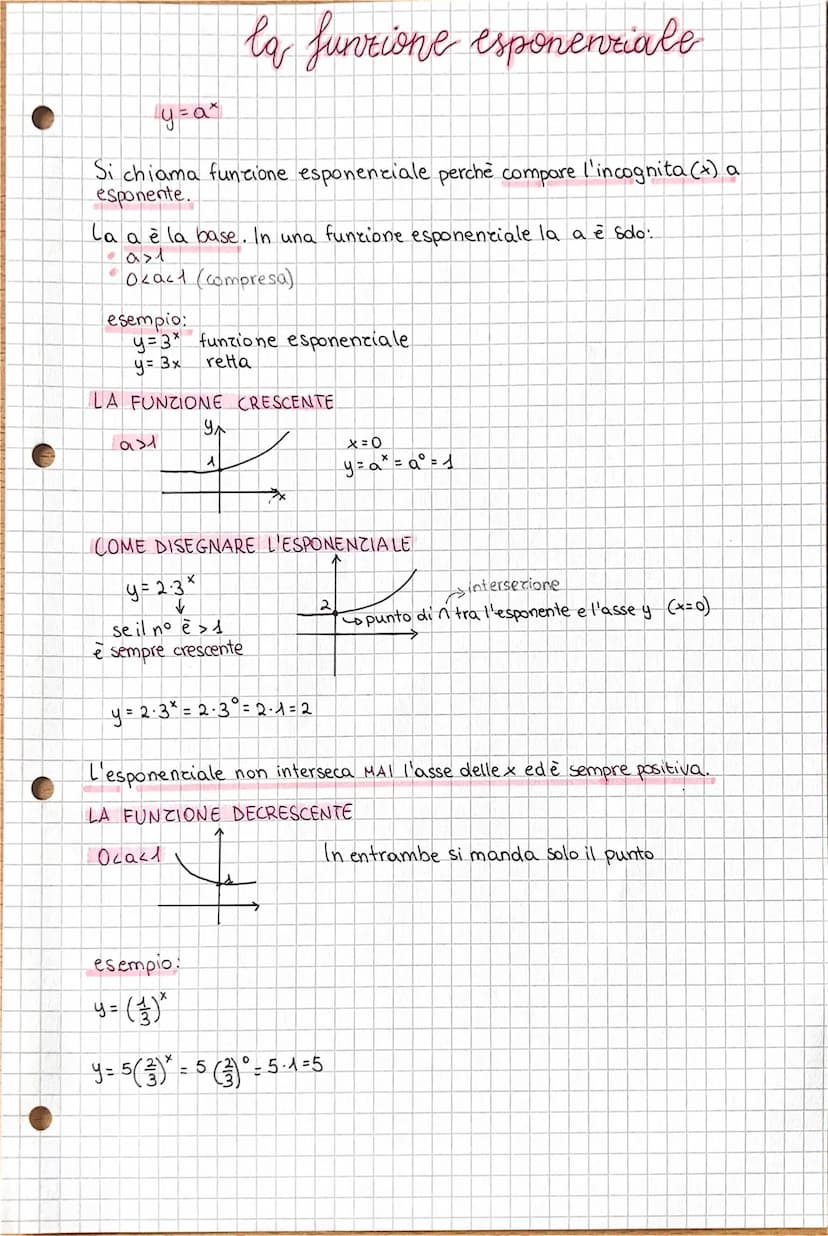 la funzione esponenziale
y = aˣ
Si chiama funzione esponenziale perchè compare l'incognita (x) a
esponente.
La a è la base. In una funzione esponenziale la a è solo:
• a>1
• 0<a<1 (compresa)
esempio:
y = 3ˣ funzione esponenziale
y = 3x retta
LA FUNZIONE CRESCENTE
y
a>1
x = 0
1
y = aˣ = a⁰ = 1
x
COME DISEGNARE L'ESPONENZIALE
y = 2·3ˣ
intersezione
2
↳ punto di ∩ tra l'esponente e l'asse y (x=0)
↓
se il n° è > 1
è sempre crescente
y = 2·3ˣ = 2·3⁰ = 2·1 = 2
L'esponenziale non interseca MAI l'asse delle x ed è sempre positiva.
LA FUNZIONE DECRESCENTE
0<a<1
In entrambe si manda solo il punto
1
esempio:
y = (1/3)ˣ
y = 5(2/3)ˣ = 5(2/3)⁰ = 5·1 = 5